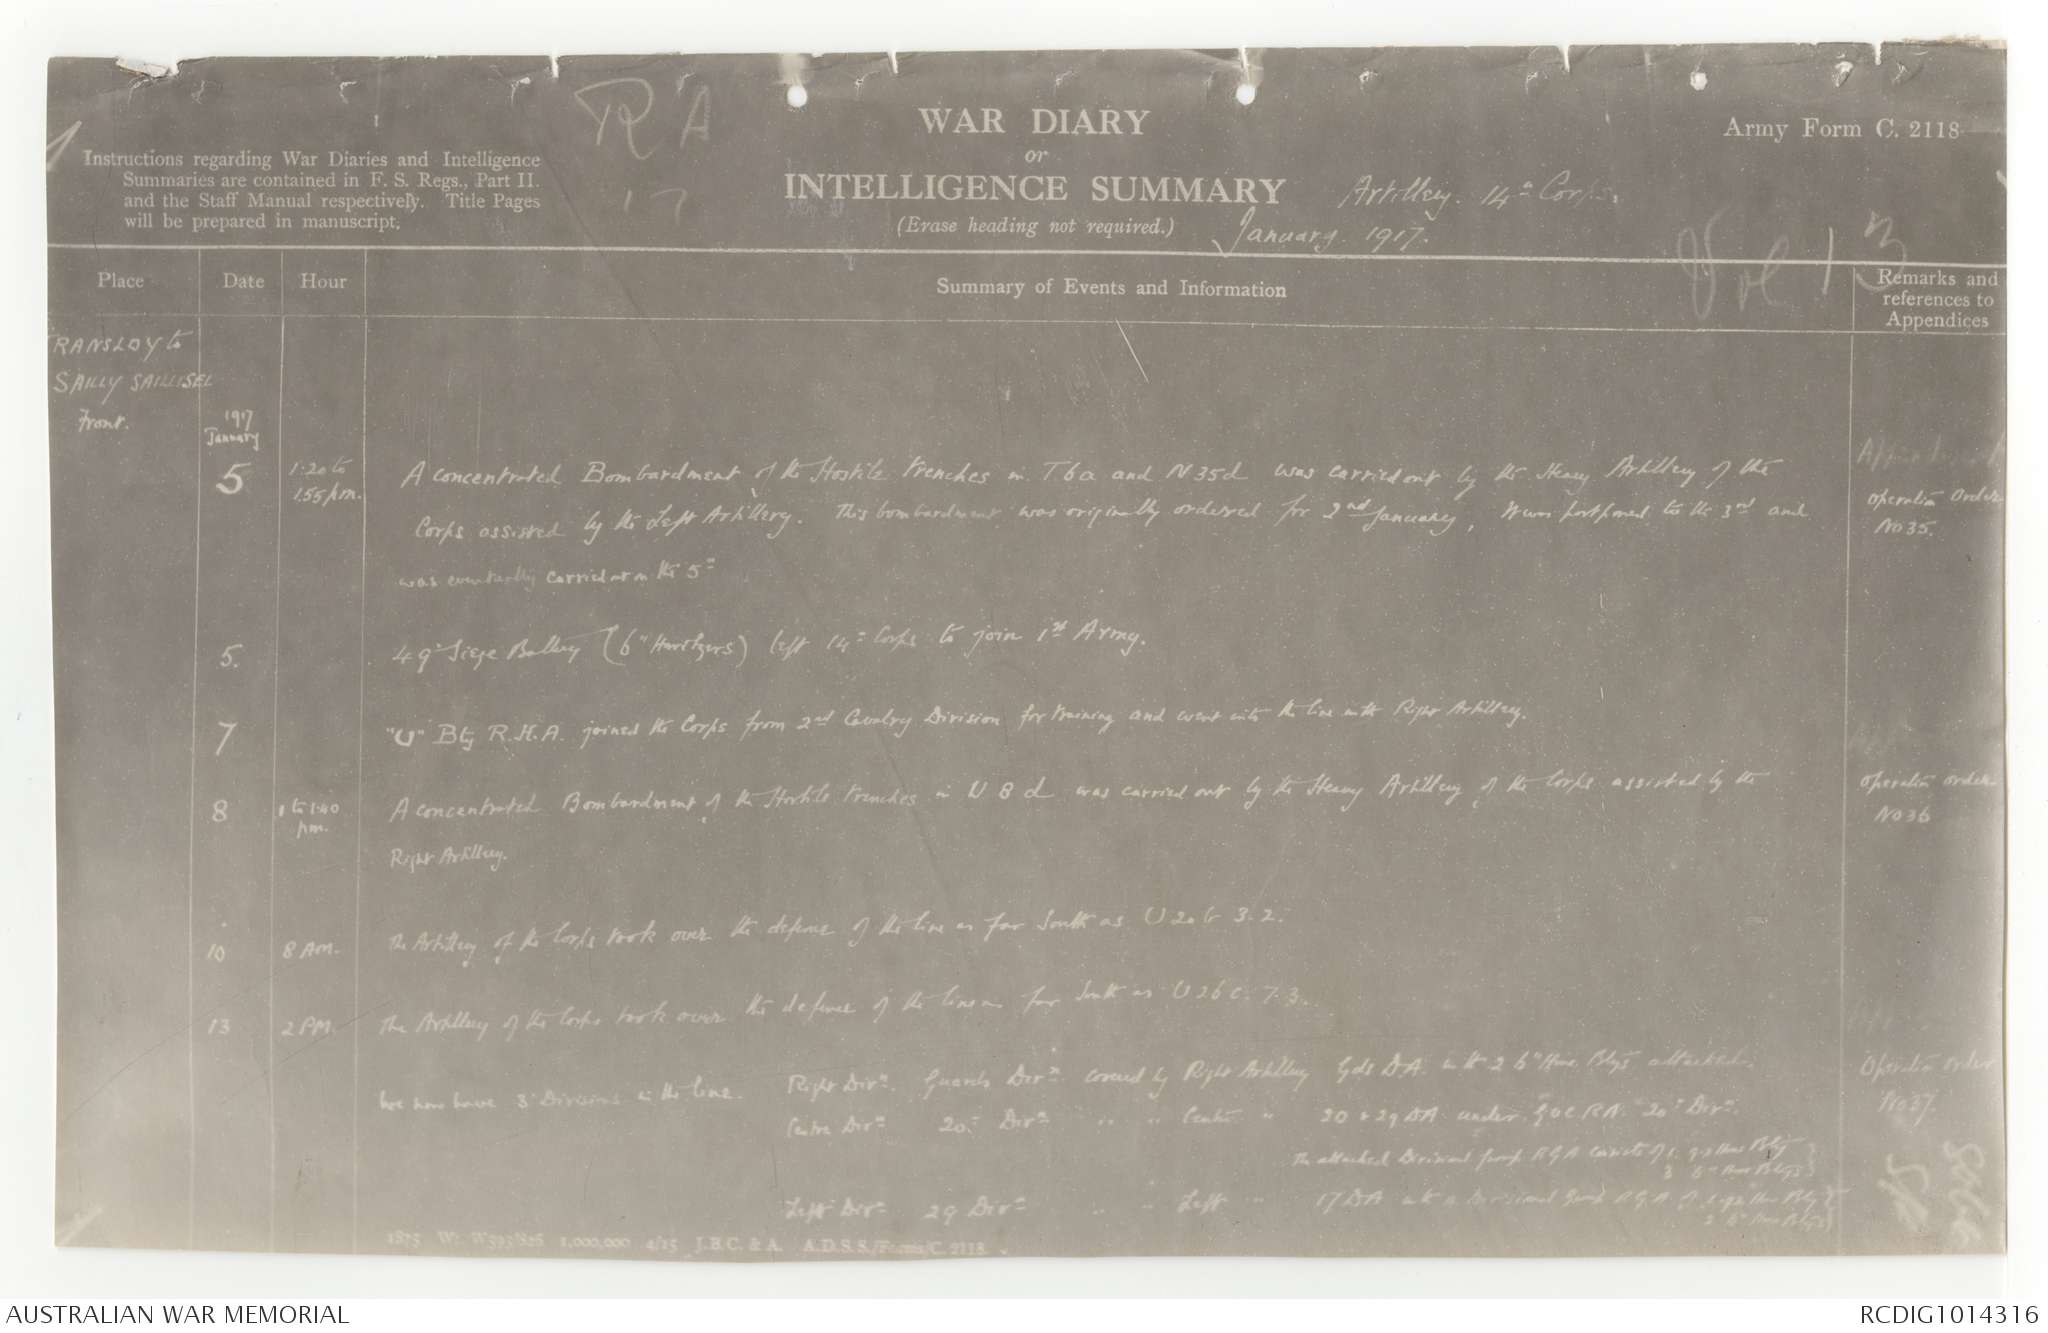 R A
17
WAR DIARY
or
INTELLIGENCE SUMMARY
(Erase heading not required.)
Army Form C. 2118
Instructions regarding War Diaries and Intelligence
Summaries are contained in F. S. Regs., Part II.
and the Staff Manual respectively. Title Pages
will be prepared in manuscript.
Artillery. 14th Corps.
January. 1917.
Vol 13
Place Date Hour Summary of Events and Information Remarks and references to Appendices
TRANSLOY to
SAILLY SAILLISEL
Front.
1917
January
5 1:20 to 1.55 pm. A concentrated Bombardment of the Hostile trenches in T6a and N35d was carried out by the Heavy Artillery of the
Corps assisted by the Left Artillery. This bombardment was originally ordered for 2nd January, It was postponed to the 3rd and
was eventually carried out on the 5th
Operation Order No 35.
5. 49th Siege Battery (6" Howitzers) left 14th Corps to join 1st Army.
7 "U" Bty R.H.A. joined the Corps from 2nd Cavalry Division for training and went into the line with Right Artillery.
8 1 to 1:40 pm. A concentrated Bombardment of the Hostile trenches in U8d was carried out by the Heavy Artillery of the Corps assisted by the
Right Artillery.
Operation Order No 36
10 8 Am. The Artillery of the Corps took over the defence of the line as far South as U20b 3.2.
13 2 PM. The Artillery of the Corps took over the defence of the line as far South as U26c.7.3.
We now have 3 Divisions in the line. Right Divn. Guards Divn. covered by Right Artillery Gds DA. with 2 6" How. Btys attached.
Centre Divn 20th Divn " " Centre " 20 & 29 DA under GOC RA. 20th Divn.
The attached Divisional group RGA consists of 1. 9.2 How Bty
3 6" How Btys
Left Divn 29 Divn " " Left " 17 DA with a Divisional Group R.G.A. of 1. 9.2 How Bty
2 6" How Btys
Operation Order No 37.
1875 Wt. W593/826 1,000,000 4/15 J.B.C. & A. A.D.S.S./Forms/C. 2118.
AUSTRALIAN WAR MEMORIAL
RCDIG1014316